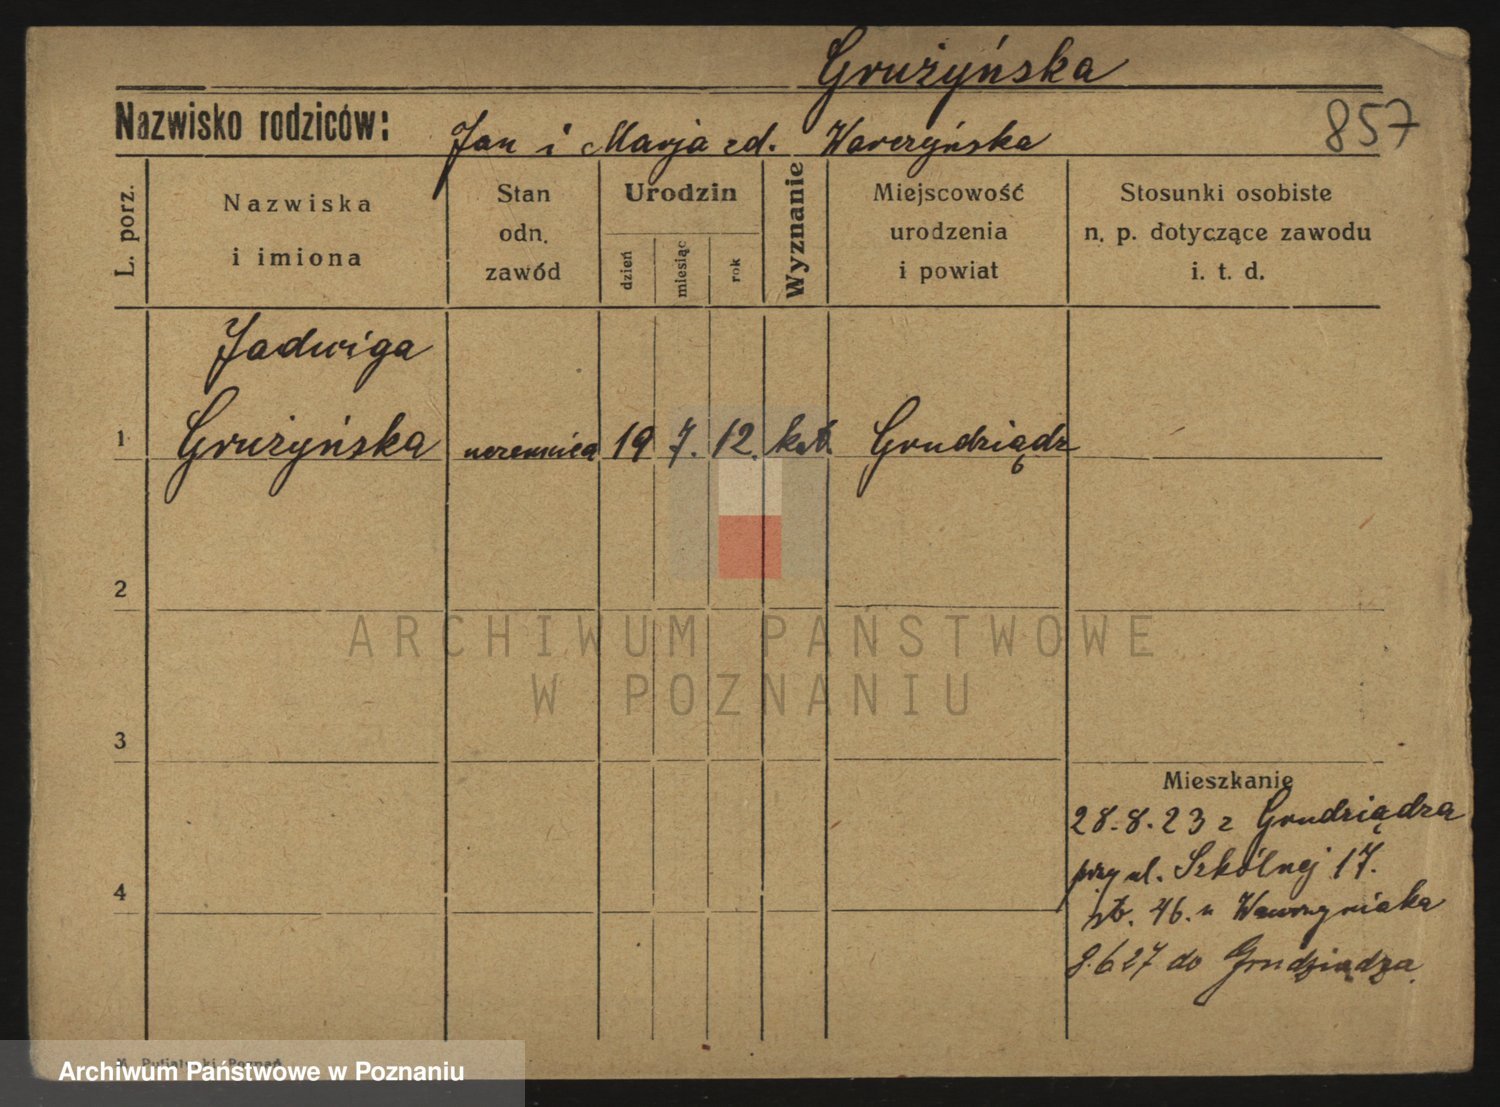 Grużyńska
Nazwisko rodziców: Jan i Marja zd. Warczyńska
857
L. porz.
Nazwiska
i imiona
Stan
odn.
zawód
Urodzin
dzień
miesiąc
rok
Wyznanie
Miejscowość
urodzenia
i powiat
Stosunki osobiste
n. p. dotyczące zawodu
i. t. d.
Jadwiga
1 Grużyńska uczennica 19 7. 12. kat. Grudziądz
2
3
4
Mieszkanie
28.8.23 z Grudziądza
przy ul. Szkólnej 17.
46. u Wawrzyniaka
8.6 27 do Grudziądza
ARCHIWUM PAŃSTWOWE
W POZNANIU
Poznań
Archiwum Państwowe w Poznaniu